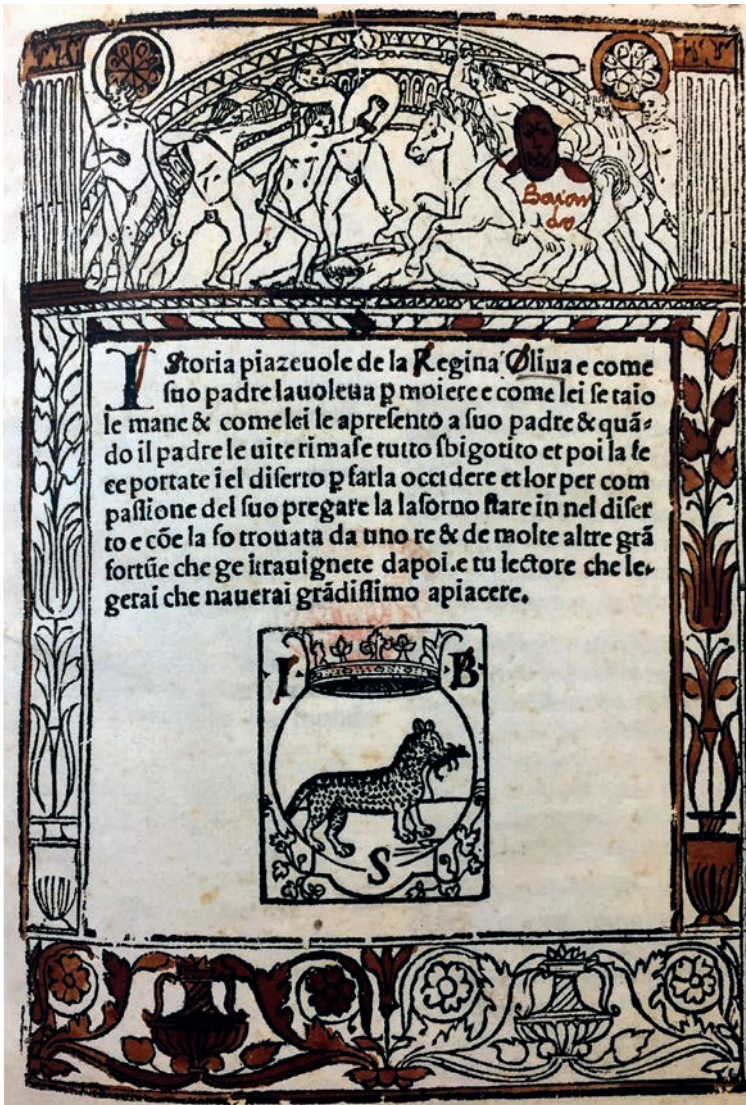 Baion
do
IStoria piazeuole de la Regina Oliua e come
suo padre lauoleua ꝑ moiere e come lei se taio
le mane & come lei le apresento a suo padre & quã-
do il padre le uite rimase tutto sbigotito et poi la fe
ce portate i el diserto ꝑ farla occidere et lor per com
passione del suo pregare la lasorno stare in nel diser
to e cõe la fo trouata da uno re & de molte altre grã
fortũe che ge itrauignete dapoi. e tu lectore che le-
gerai che nauerai grãdissimo apiacere.
I B
S